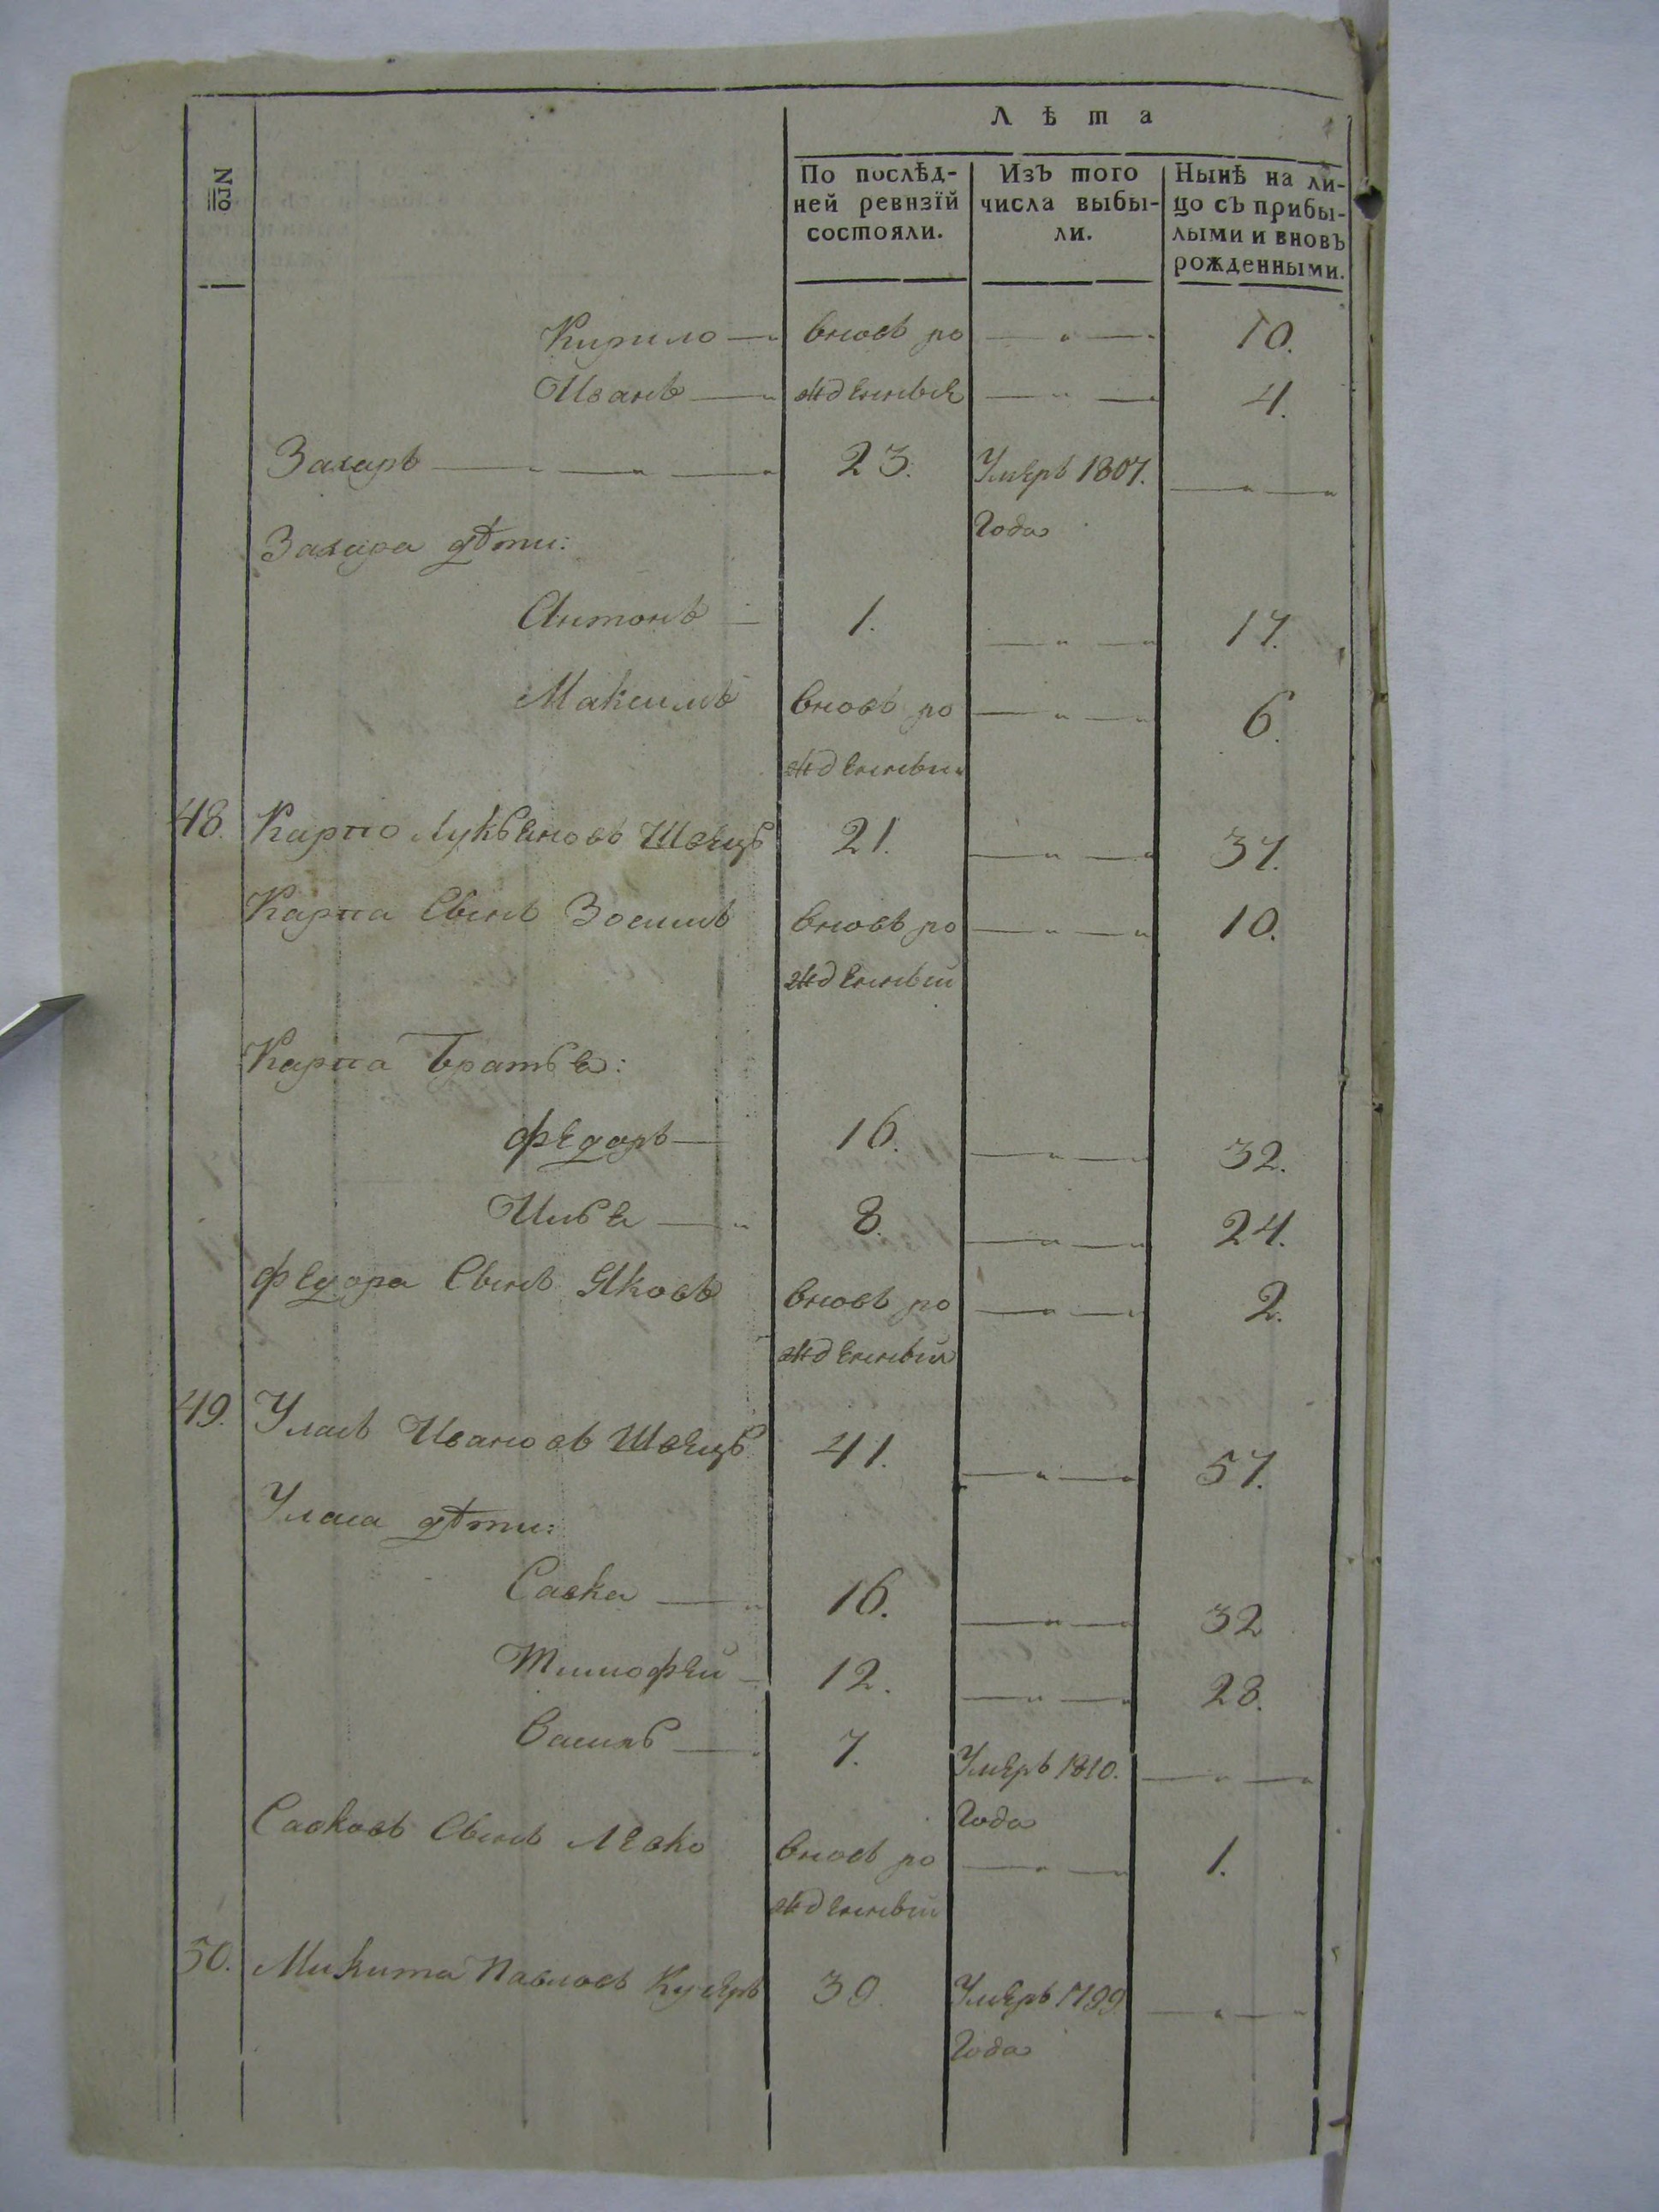 Лѣта
№го
По послѣд-
ней ревизїй
состояли.
Изъ того
числа выбы-
ли.
Нынѣ на ли-
цо съ прибы-
лыми и вновь
рожденными.
Кирило — вновь ро — „ — 10.
Иванъ — жденные — „ — 4.
Захаръ — „ — 23. Умеръ 1807. — „ —
Года
Захара дѣти:
Антонъ — 1. — „ — 17.
Максимъ вновь ро — „ — 6.
жденный
48. Карпо Лукьяновъ Швецъ 21. — „ — 37.
Карпа Сынъ Зосимъ вновь ро — „ — 10.
жденный
Карпа Братья:
Федоръ — 16. — „ — 32.
Илья — 8. — „ — 24.
Федора Сынъ Яковъ вновь ро — „ — 2.
жденный
49. Уласъ Ивановъ Швецъ 41. — „ — 57.
Уласа дѣти:
Савка — 16. — „ — 32
Тимофей — 12. — „ — 28.
Василь — 7. Умеръ 1810. — „ —
Года
Савковъ Сынъ Левко вновь ро — „ — 1.
жденный
50. Микита Павловъ Кучеръ 39. Умеръ 1799 — „ —
Года